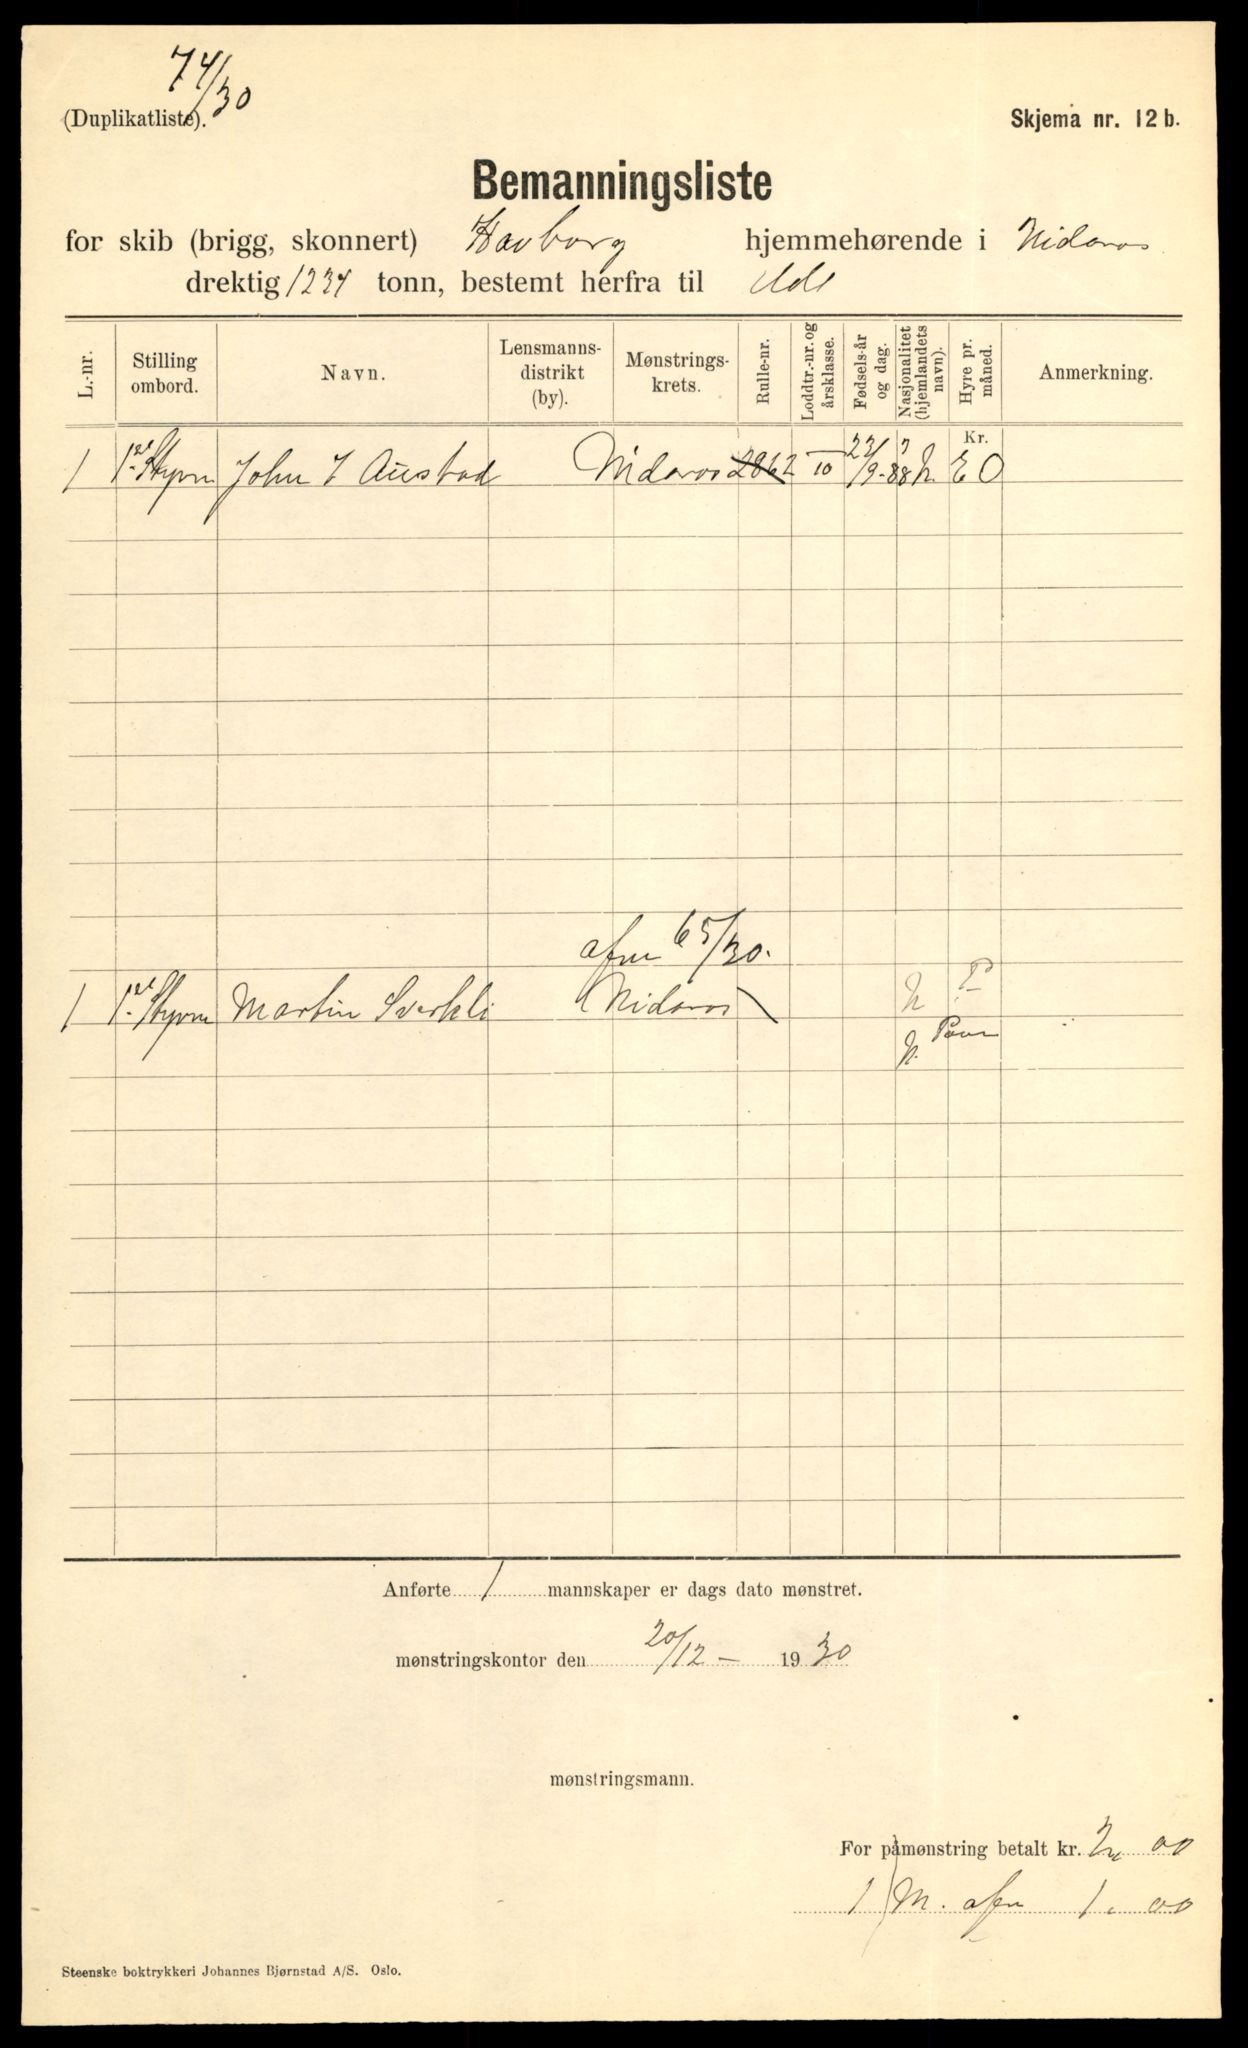 74/30
(Duplikatliste).
Skjema nr. 12 b.
Bemanningsliste
for skib (brigg, skonnert) Havborg hjemmehørende i Nidaros
drektig 1234 tonn, bestemt herfra til
L.-nr. Stilling ombord. Navn. Lensmanns-distrikt (by). Mønstrings-krets. Rulle-nr. Loddtr.-nr. og årsklasse. Fødsels-år og dag. Nasjonalitet (hjemlandets navn). Hyre pr. måned. Anmerkning.
Kr.
1 1ste Styrm John J Austad Nidaros 2862 — 10 23/9-88 N. E O
afm 65/30.
1 1ste Styrm Martin Sverkli Nidaros N P
N.
Anførte 1 mannskaper er dags dato mønstret.
mønstringskontor den 20/12 – 1930
mønstringsmann.
For påmønstring betalt kr. 2, 00
1 M. afm 1. 00
Steenske boktrykkeri Johannes Bjørnstad A/S. Oslo.